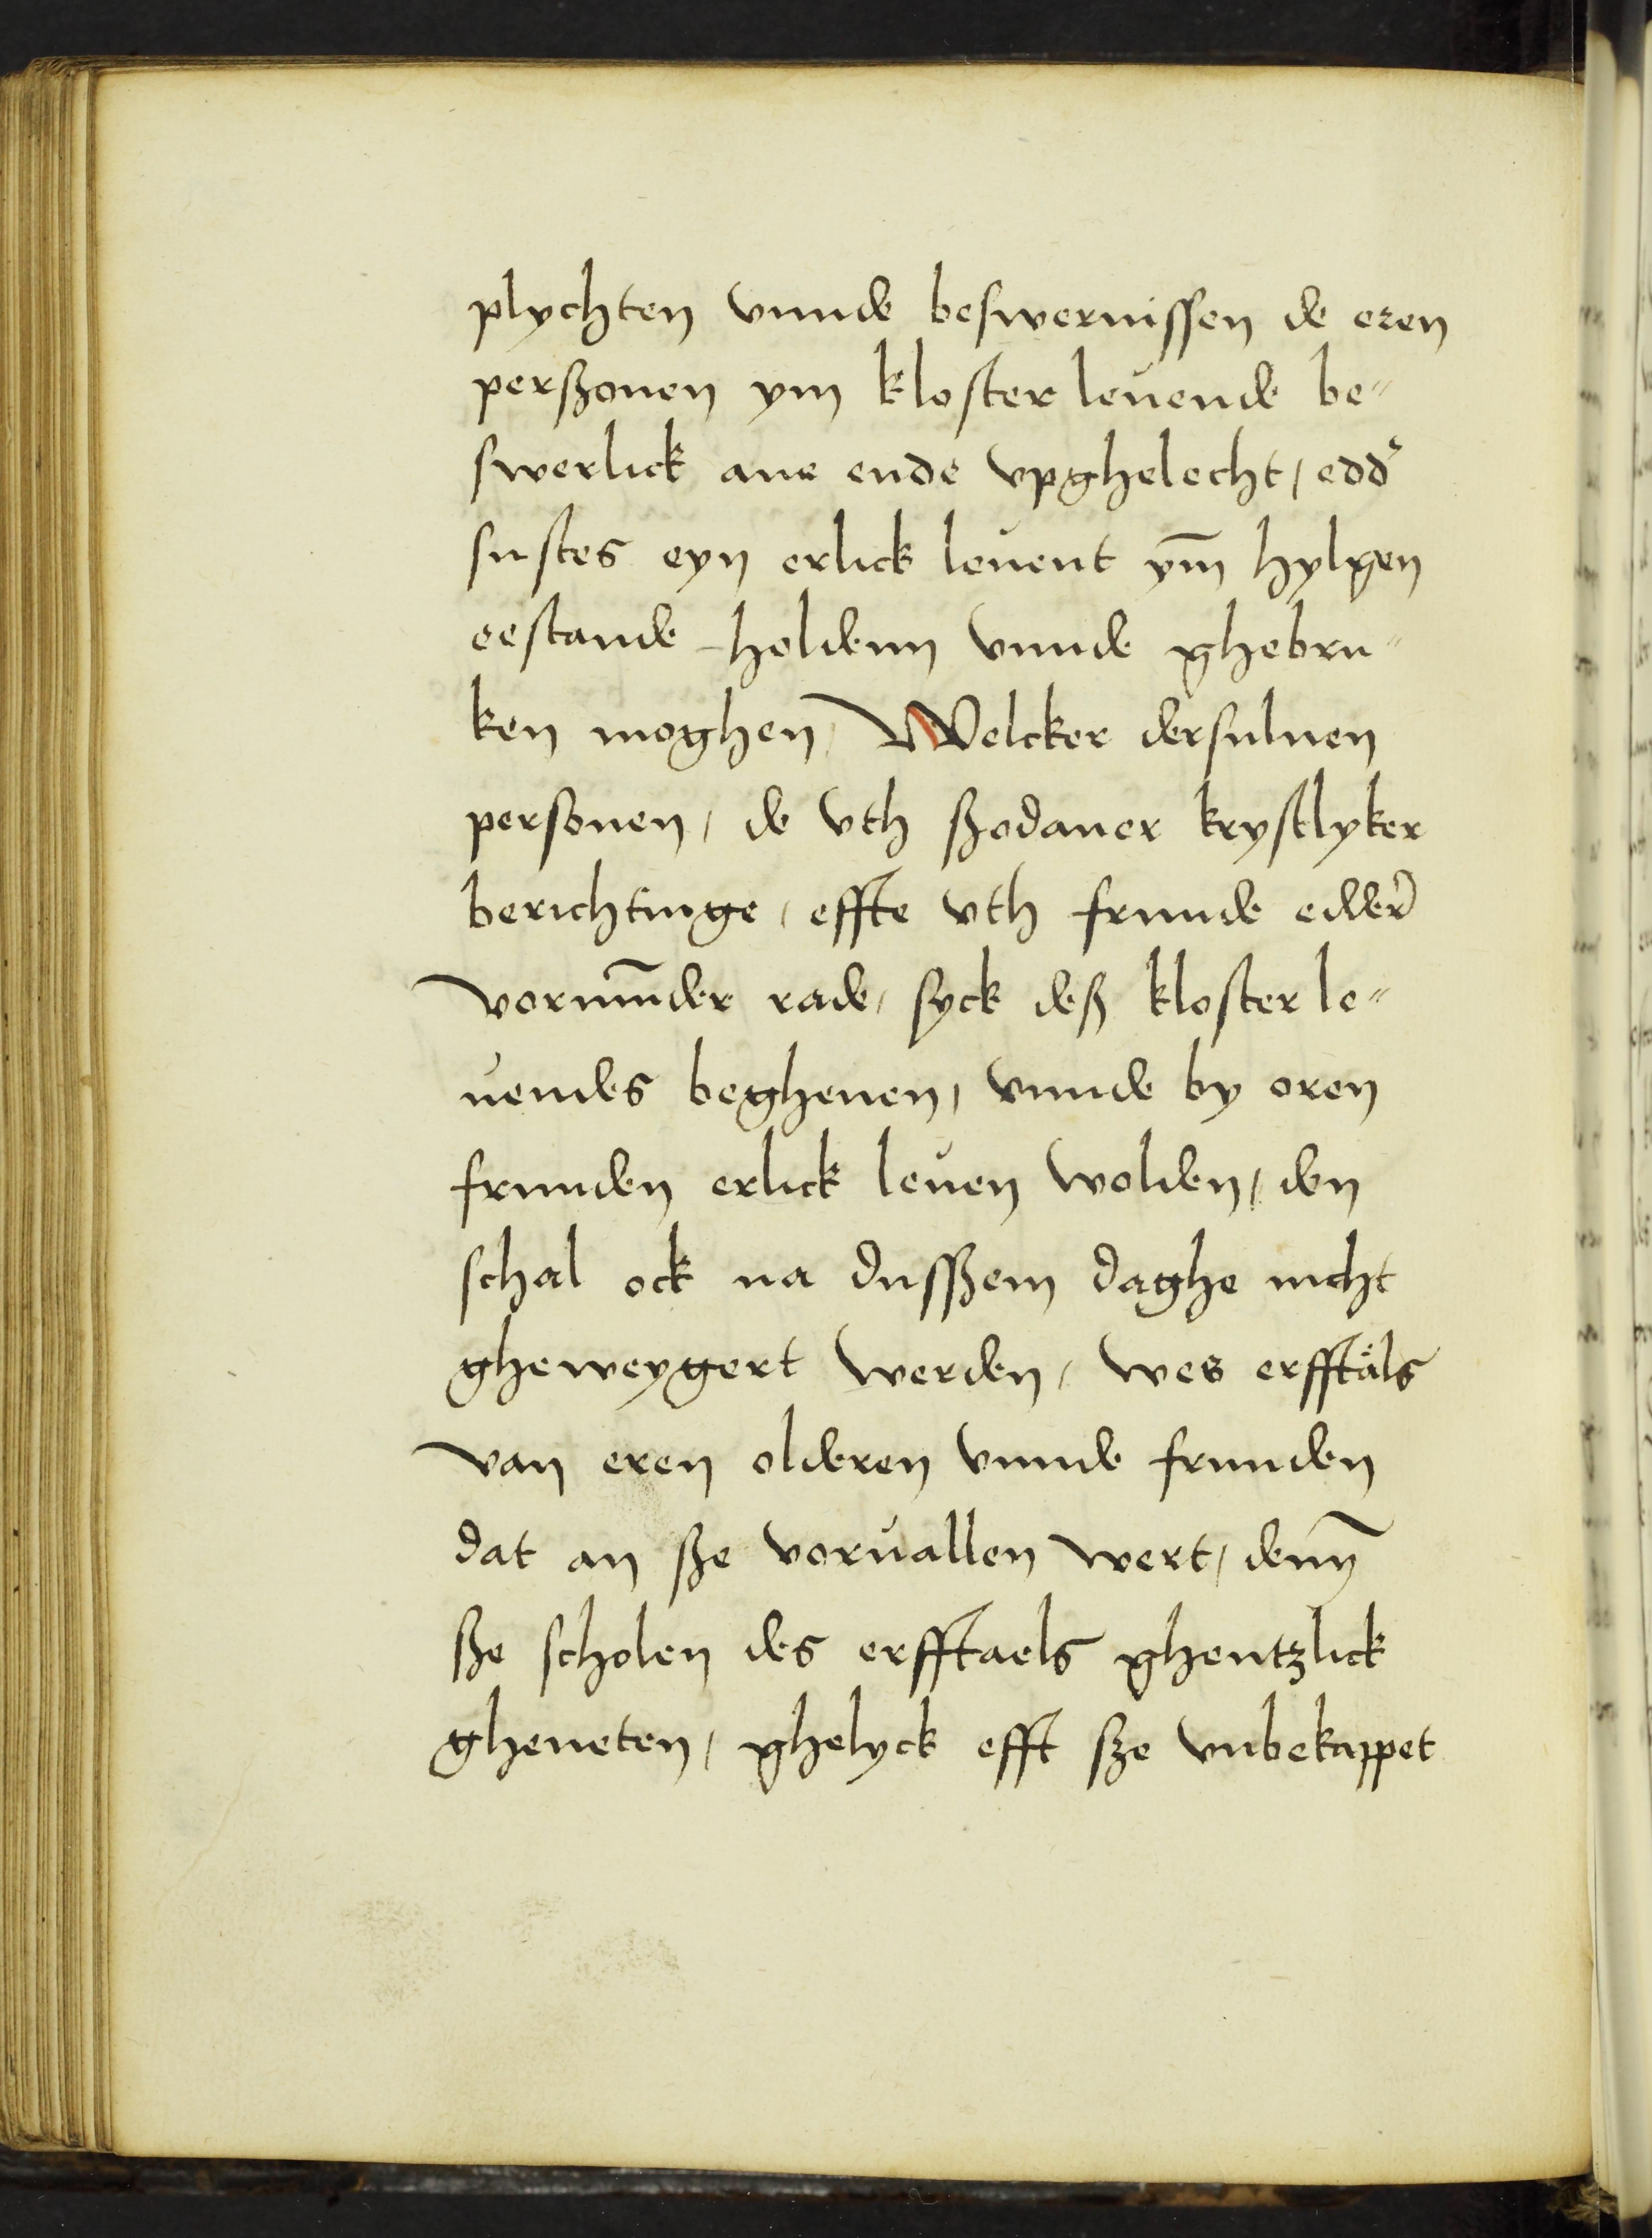 plychten vnnde beswernissen de eren
perßonen ym kloster leuende be⸗
swerlick ane ende vpghelecht / edd᷑
sustes eyn erlick leuent ym̄ hylgen
eestande holdenn vnnde ghebru⸗
ken moghen / Welcker dersuluen
personen / de vth ßodaner krystlyker
berichtinge / effte vth frunde edder᷑
vormūder rade / syck deß kloster le⸗
uendes begheuen / vnnde by oren
frunden erlick leuen wolden / den
schal ock na dusßem daghe nicht
gheweygert werden / wes erfftåls
van eren olderen vnnde frunden
dat an ße voruallen wert / denn̄
ße scholen des erfftaels ghentzlick
gheneten / ghelyck efft sze vnbekappet